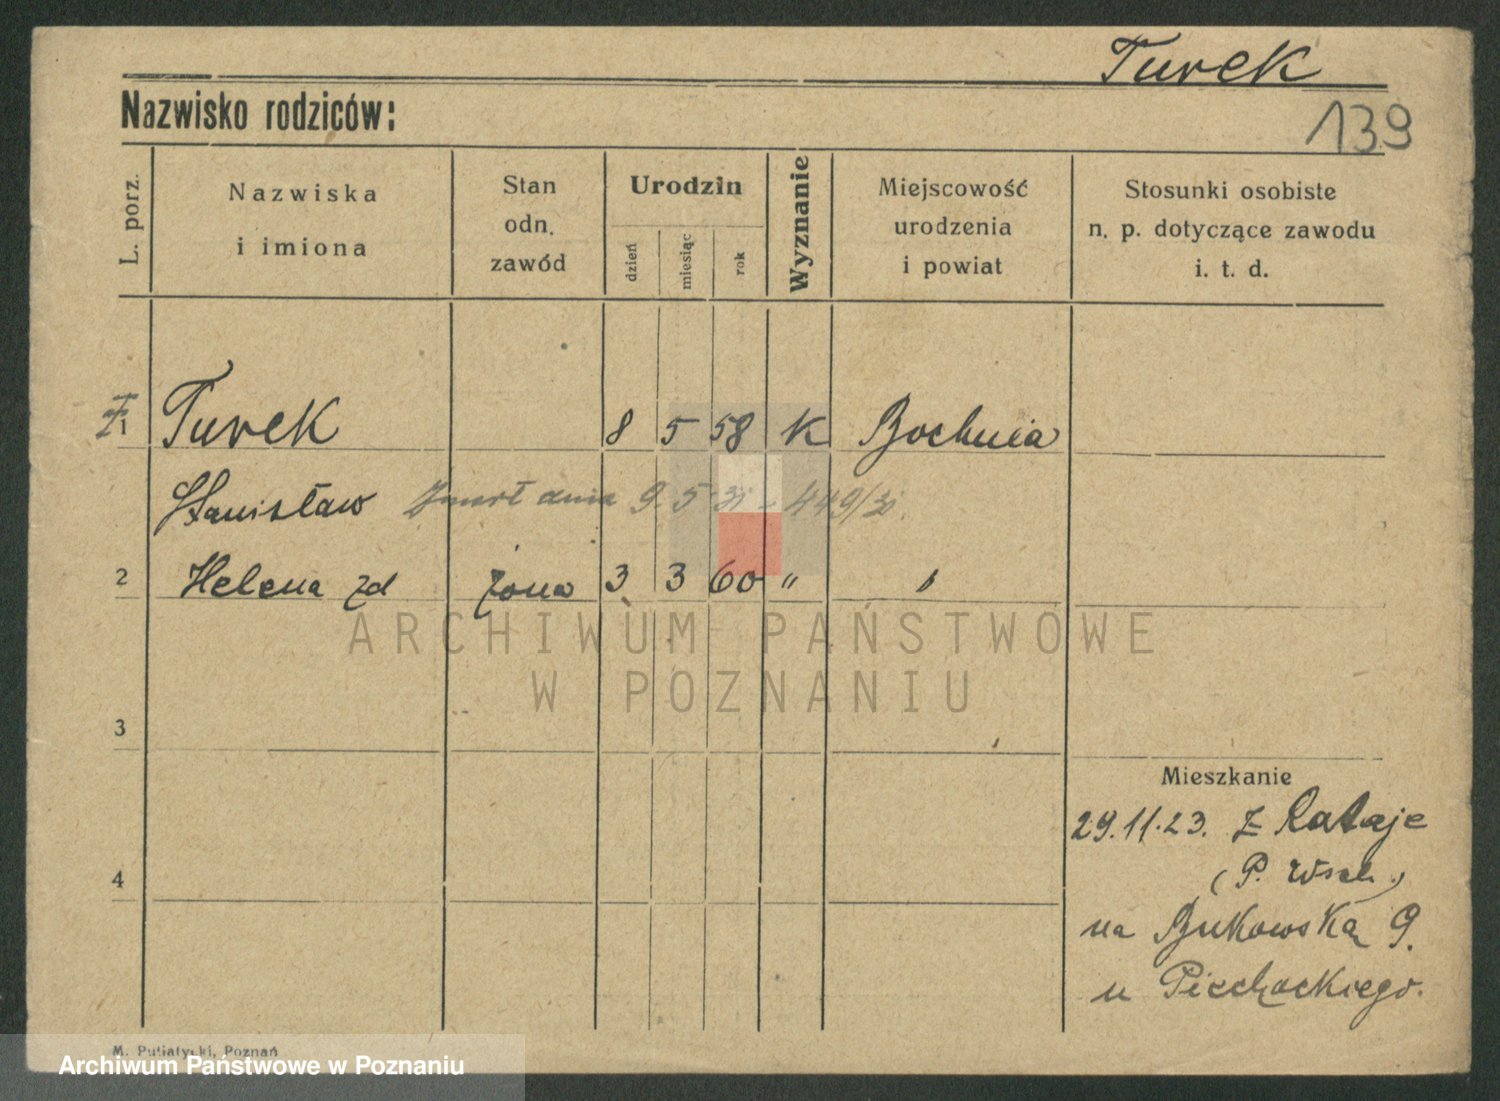 Turek
139
Nazwisko rodziców:
L. porz.
Nazwiska
i imiona
Stan
odn.
zawód
Urodzin
dzień
miesiąc
rok
Wyznanie
Miejscowość
urodzenia
i powiat
Stosunki osobiste
n. p. dotyczące zawodu
i. t. d.
1 Turek 8 5 58 K Bochnia
Stanisław Zmarł dnia 9 5 31 - 449/31.
2 Helena zd żona 3 3 60 " "
ARCHIWUM PAŃSTWOWE
W POZNANIU
3
Mieszkanie
29.11.23. z Rataje
(P. Wsch.)
4
na Bukowską 9.
u Piechockiego.
M. Putiatycki, Poznań
Archiwum Państwowe w Poznaniu